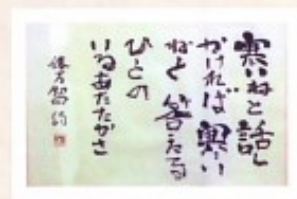 寒いねと話し
かければ寒い
ねと答える
ひとの
いるあたたかさ
俵万智